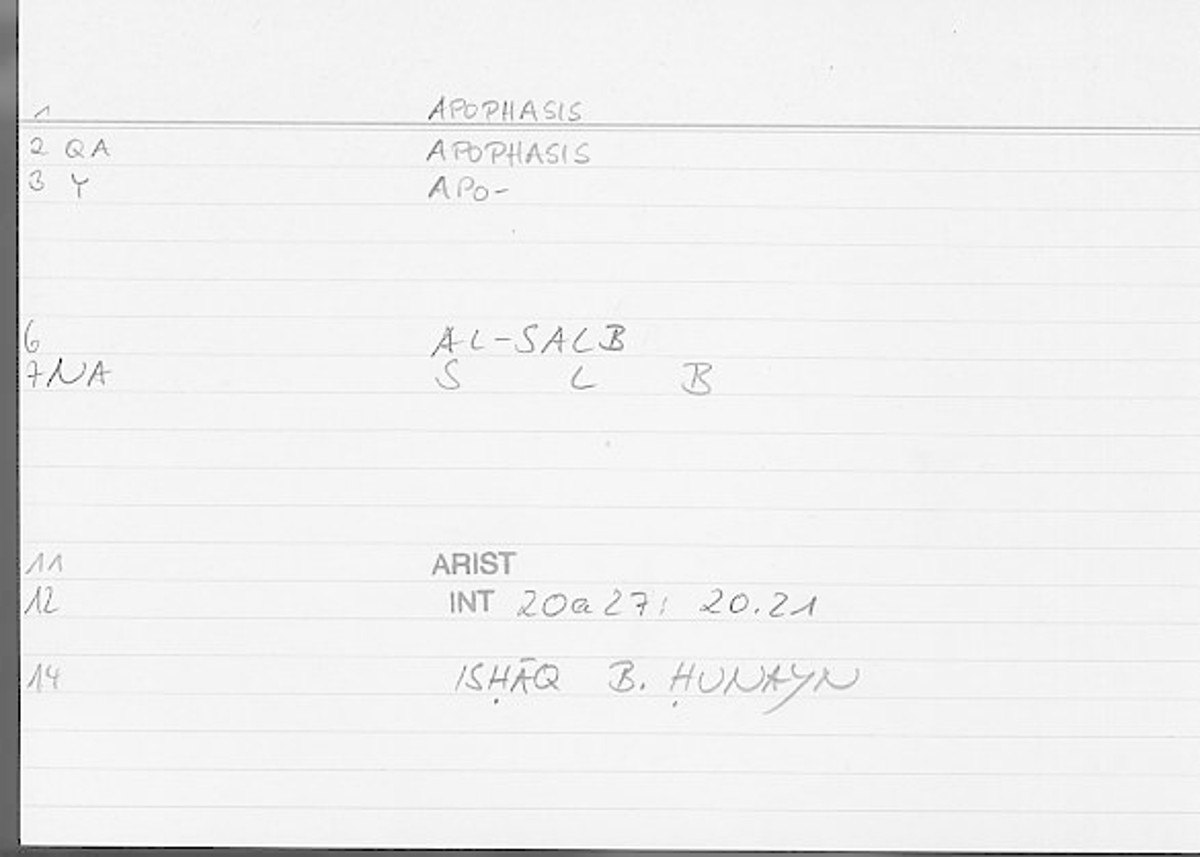 1 APOPHASIS
2 QA APOPHASIS
3 Y APO-
6 AL-SALB
7NA S L B
11 ARIST
12 INT 20a27: 20.21
14 ISḤĀQ B. ḤUNAYN